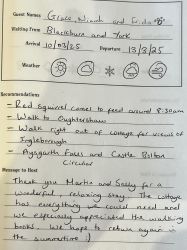 Guest Names Grace, Niamh and Frida
Visiting From Blackburn and York
Arrival 10/03/25 Departure 13/3/25
Weather
Recommendations
- Red squirrel comes to feed around 8:30am
- Walk to Oughtershaw
- Walk right out of cottage for views of
Ingleborough
- Aysgarth Falls and Castle Bolton
Circular
Message to Host
Thank you Martin and Sally for a
wonderful, relaxing stay. The cottage
has everything we could need and
we especially appreciated the walking
books. We hope to return again in
the summertime :)